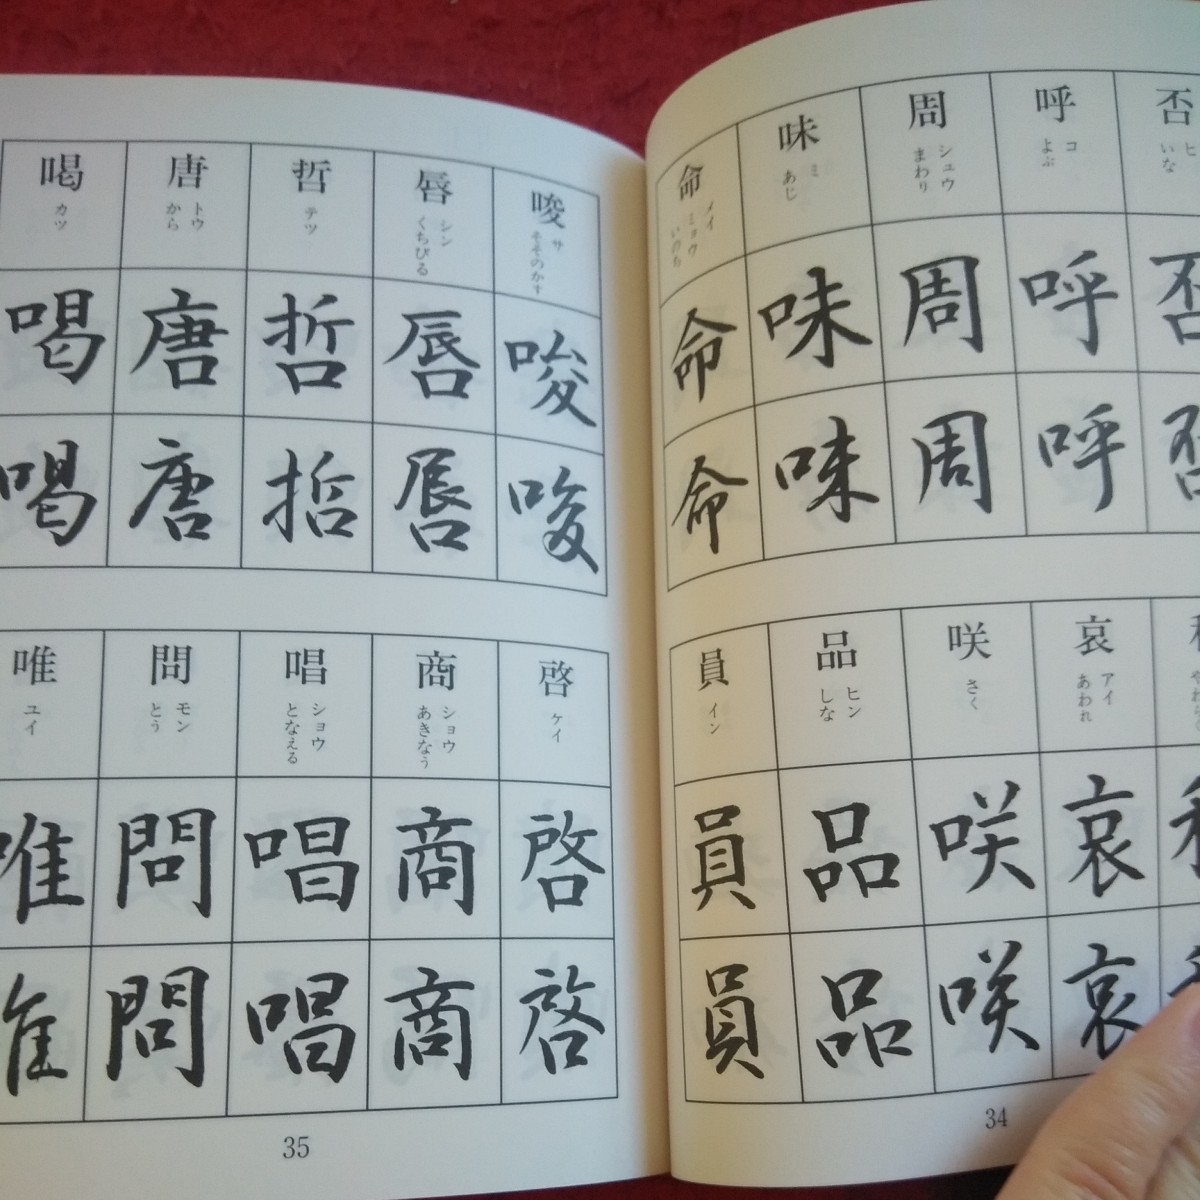 否 ヒ いな 否 否
呼 コ よぶ 呼 呼
周 シュウ まわり 周 周
味 ミ あじ 味 味
命 メイ ミョウ いのち 命 命
哀 アイ あわれ 哀 哀
咲 さく 咲 咲
品 ヒン しな 品 品
員 イン 員 員
34
唆 サ そそのかす 唆 唆
唇 シン くちびる 唇 唇
哲 テツ 哲 哲
唐 トウ から 唐 唐
喝 カツ 喝 喝
啓 ケイ 啓 啓
商 ショウ あきなう 商 商
唱 ショウ となえる 唱 唱
問 モン とう 問 問
唯 ユイ 唯 唯
35